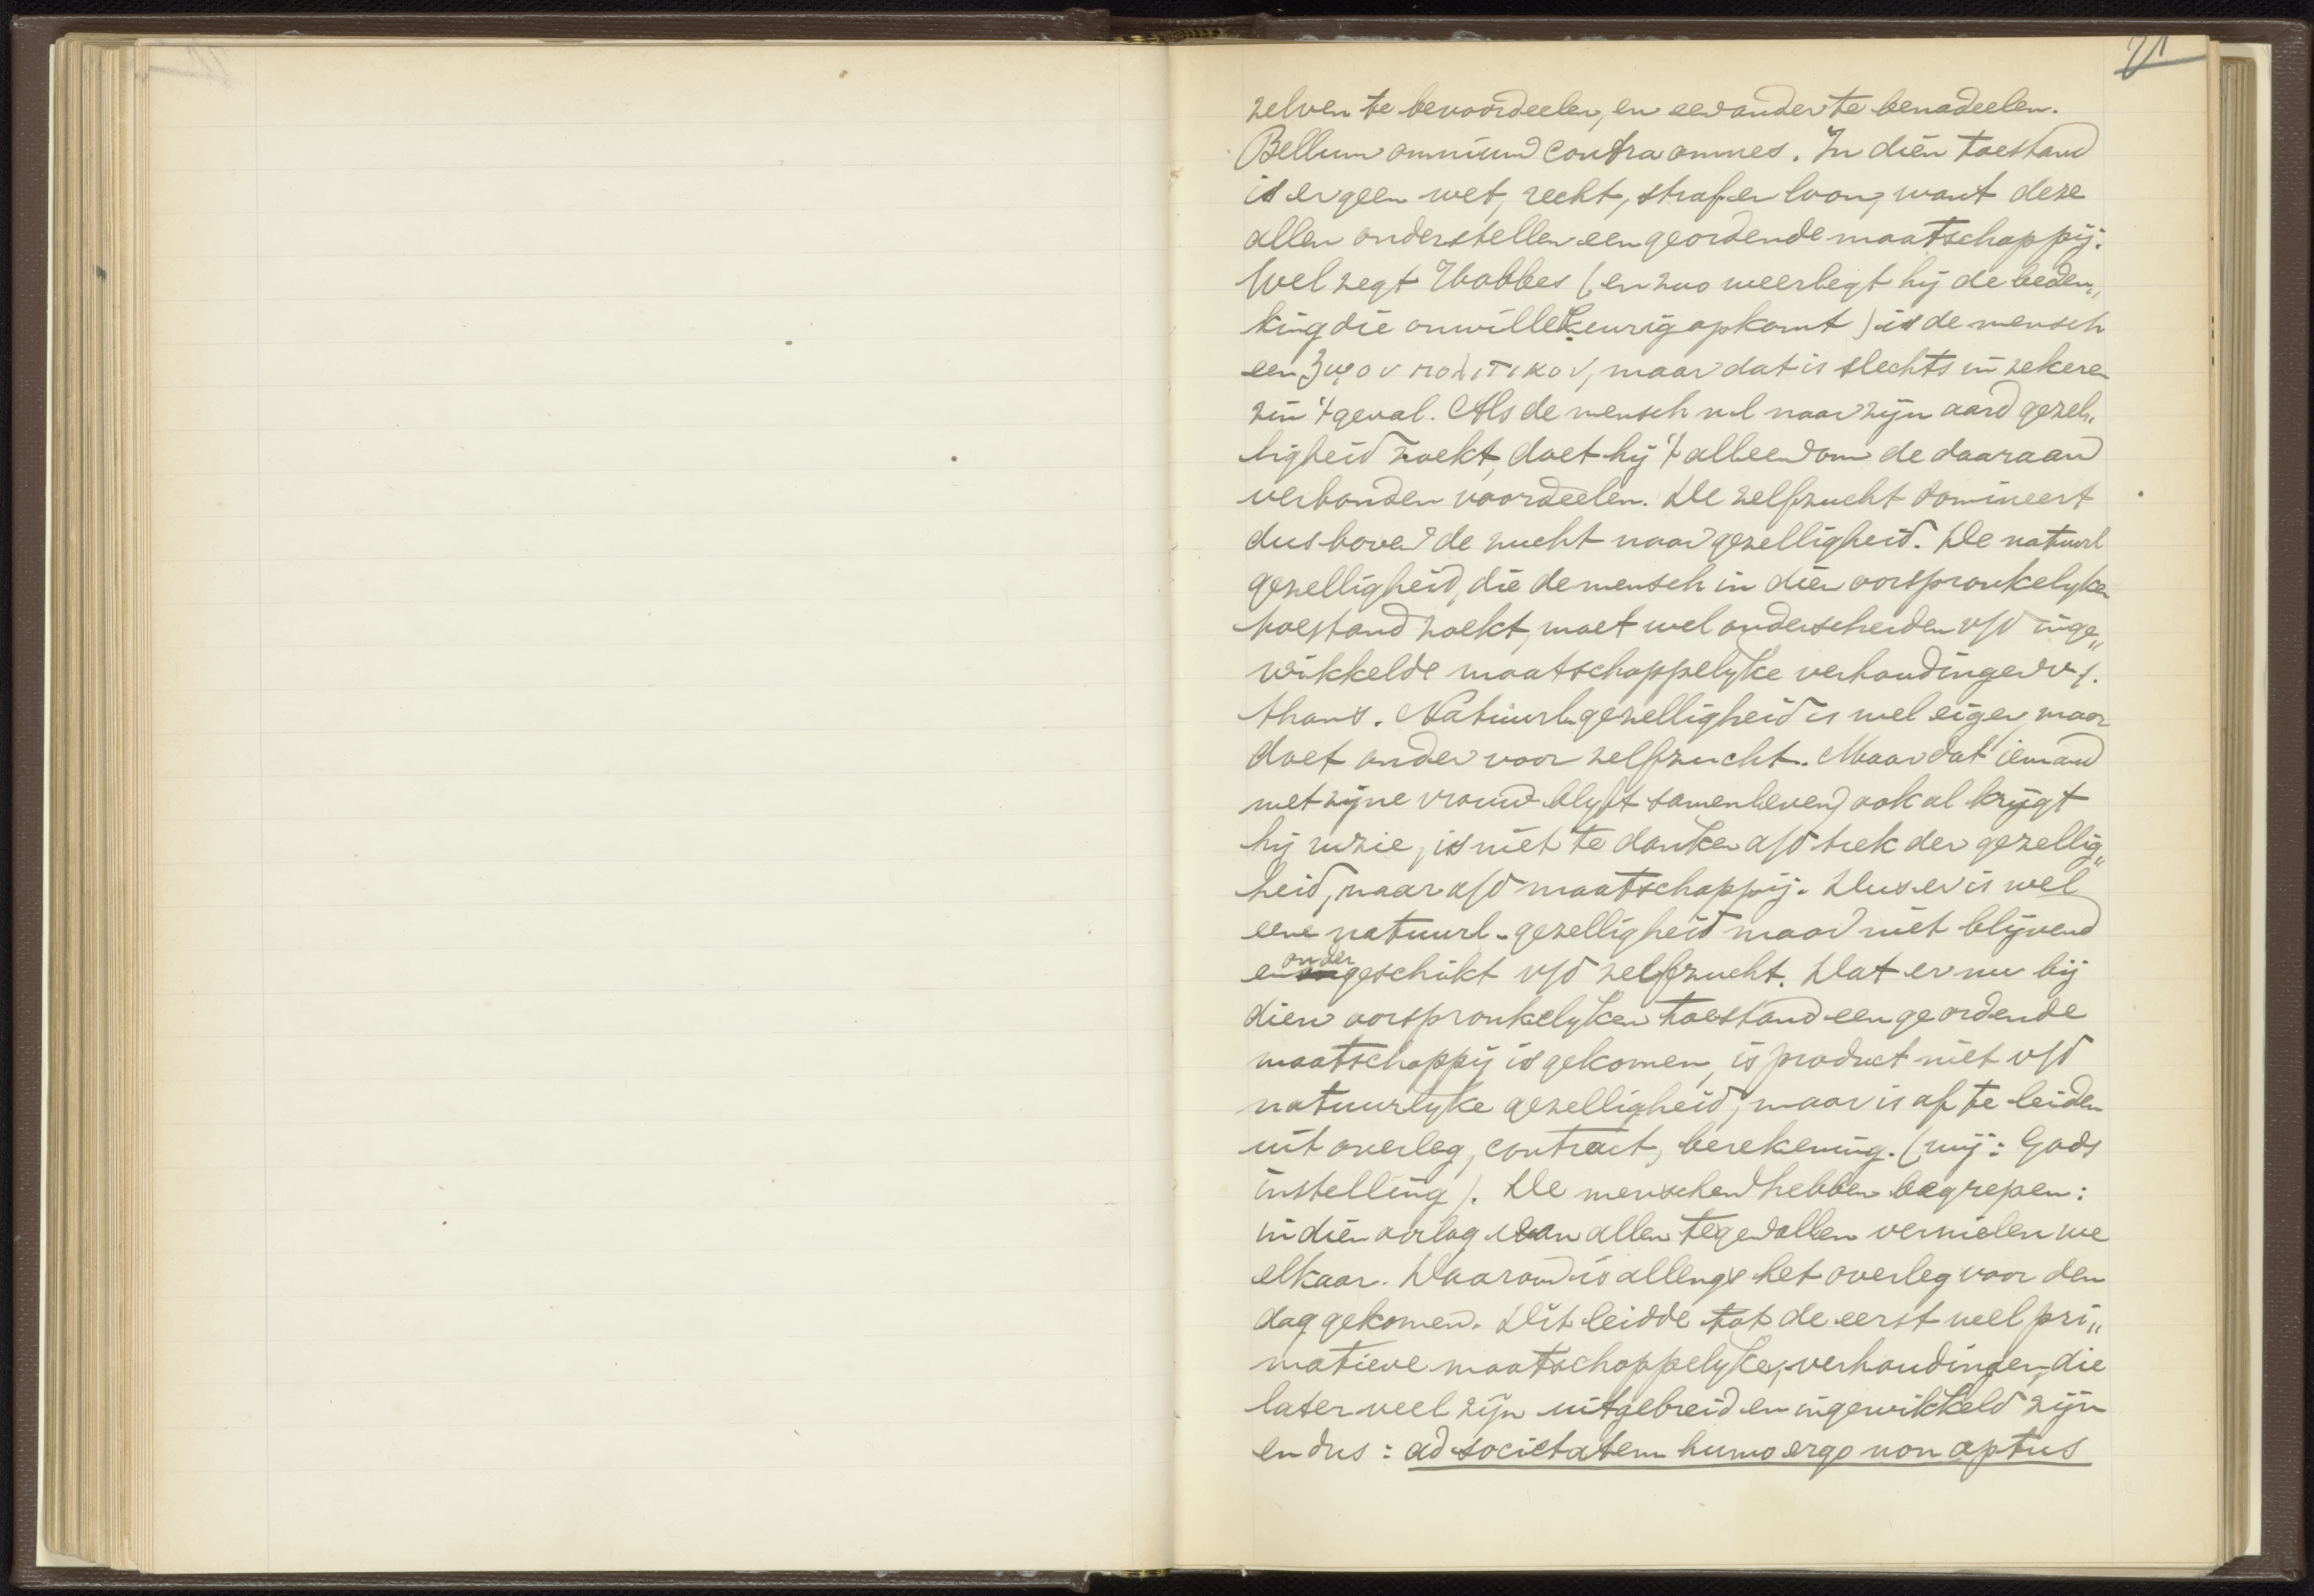 21
zelven te bevoordeelen, en een ander te benadeelen.
Bellum omnium contra omnes. In dien toestand
is er geen wet, recht, straf en loon, want deze
allen onderstellen een geordende maatschappij.
Wel zegt Hobbes (en zoo weerlegt hij de beden„
king die onwillekeurig opkomt) is de mensch
een ζῳον πολιτικον, maar dat is slechts in zekere
zin 't geval. Als de mensch nl naar zijn aard gezel„
ligheid zoekt, doet hij 't alleen om de daaraan
verbonden voordeelen. De zelfzucht domineert
dus boven de zucht naar gezelligheid. De natuurl
gezelligheid, die de mensch in dien oorspronkelyken
toestand zoekt, moet wel onderscheiden v/d inge„
wikkelde maatschappelyke verhoudingen v/.
thans. Natuurl. gezelligheid is wel eigen, maar
doet onder voor zelfzucht. Maar dat iemand
met zijne vrouw blyft samenleven, ook al krijgt
hij ruzie, is niet te danken a/d trek der gezellig„
heid, maar a/d maatschappij. Dus er is wel
eene natuurl. gezelligheid maar niet blijvend
en ondergeschikt v/d zelfzucht. Dat er nu bij
dien oorspronkelyken toestand een geordende
maatschappij is gekomen, is product niet v/d
natuurlyke gezelligheid, maar is af te leiden
uit overleg, contract, berekening. (wij: Gods
instelling). De menschen hebben begrepen:
in dien oorlog van allen tegen allen vernielen we
elkaar. Daarom is allengs het overleg voor den
dag gekomen. Dit leidde tot de eerst wel pri„
matieve maatschappelyke, verhoudingen, die
later veel zijn uitgebreid en ingewikkeld zijn
en dus: ad societatem humo ergo non aptus